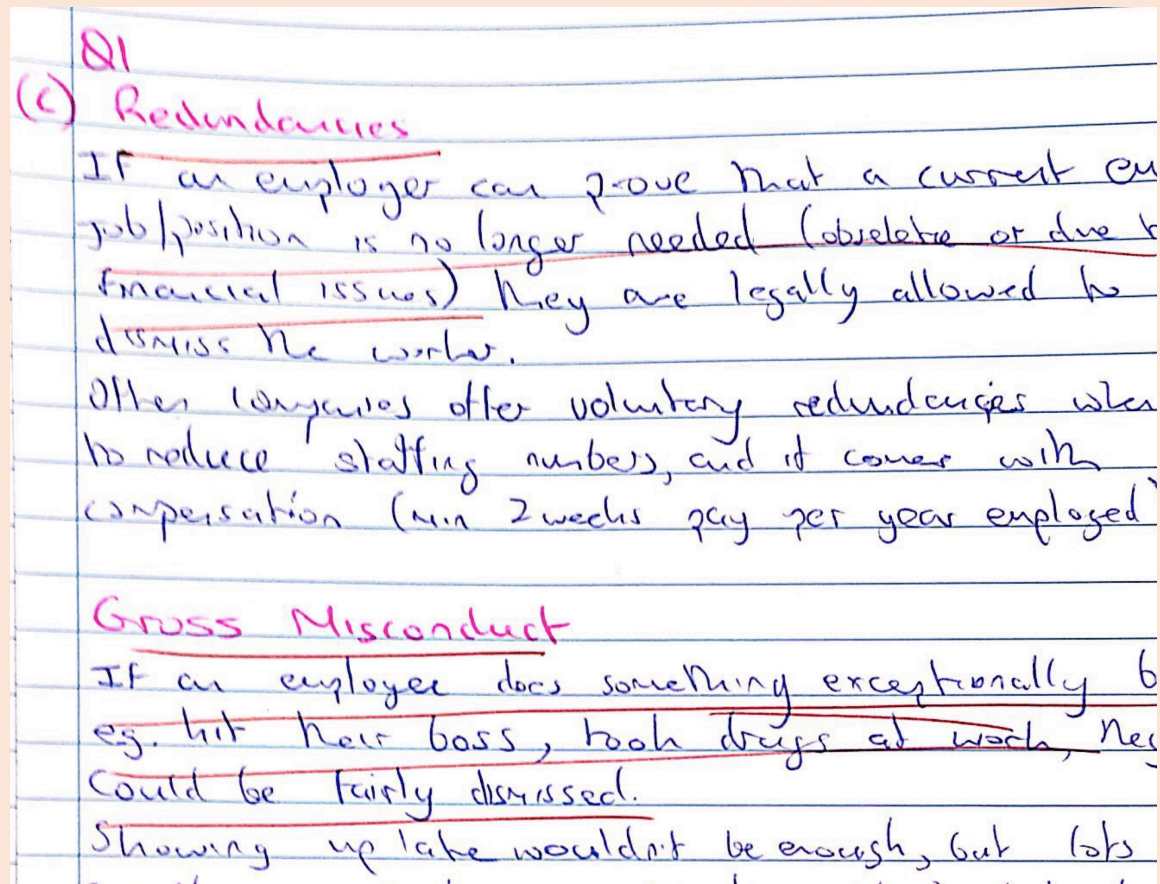 Q1
(c) Redundancies
If an employer can prove that a current em
job/position is no longer needed (obselete or due t
financial issues) they are legally allowed to
dismiss the worker.
Often companies offer voluntary redundancies when
to reduce staffing numbers, and it comes with
compensation (min 2 weeks pay per year employed)
Gross Misconduct
If an employee does something exceptionally b
eg. hit their boss, took drugs at work, they
could be fairly dismissed.
Showing up late wouldn't be enough, but lots